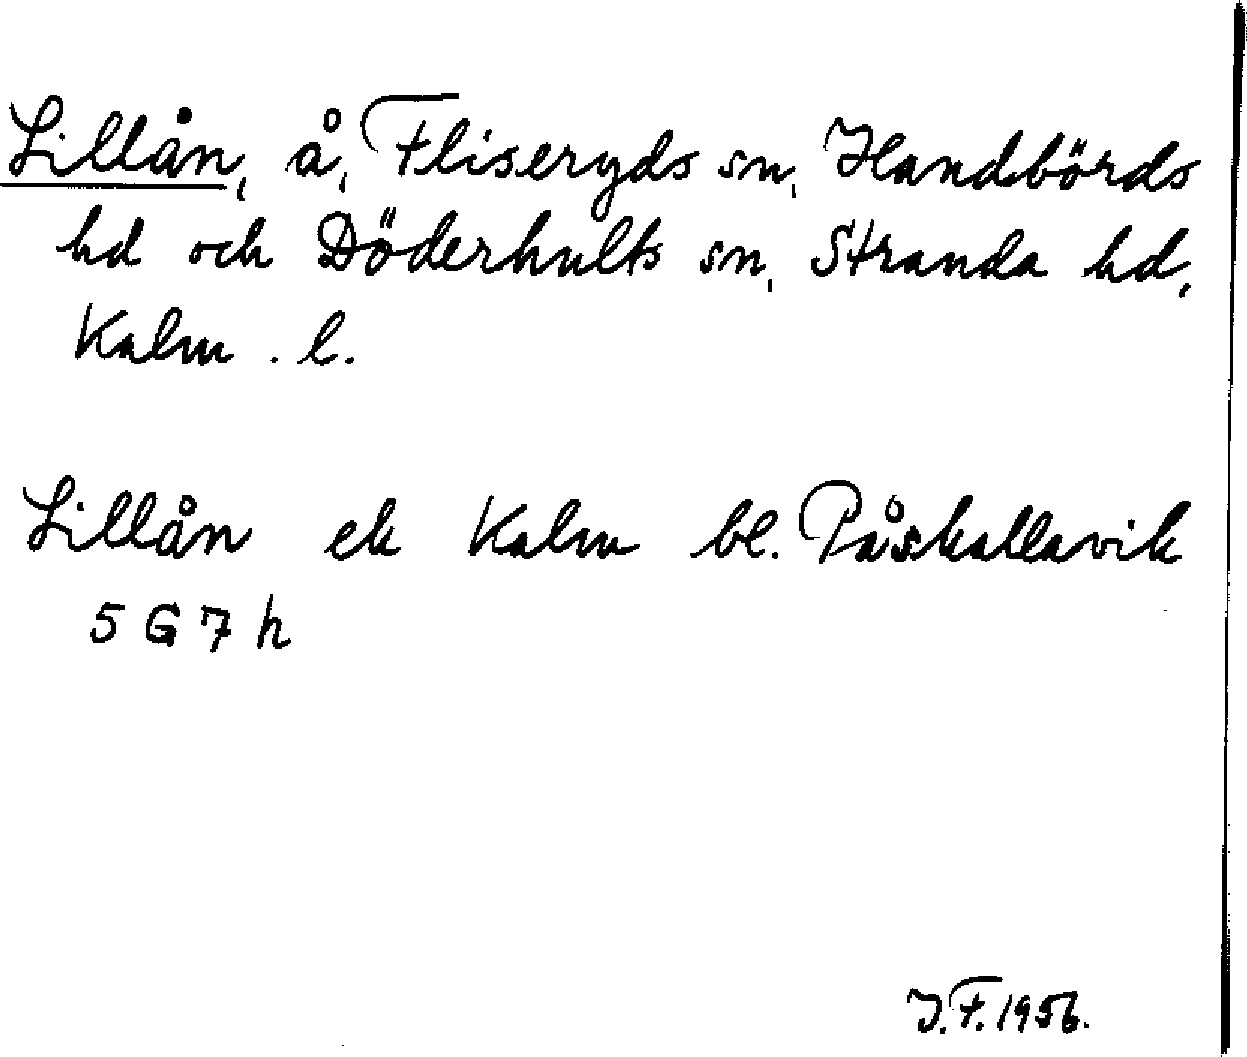 Lillån, å, Fliseryds sn, Handbörds
hd och Döderhults sn, Stranda hd,
Kalm. l.
Lillån ek Kalm bl. Påskallavik
5 G 7 h
J.F. 1956.